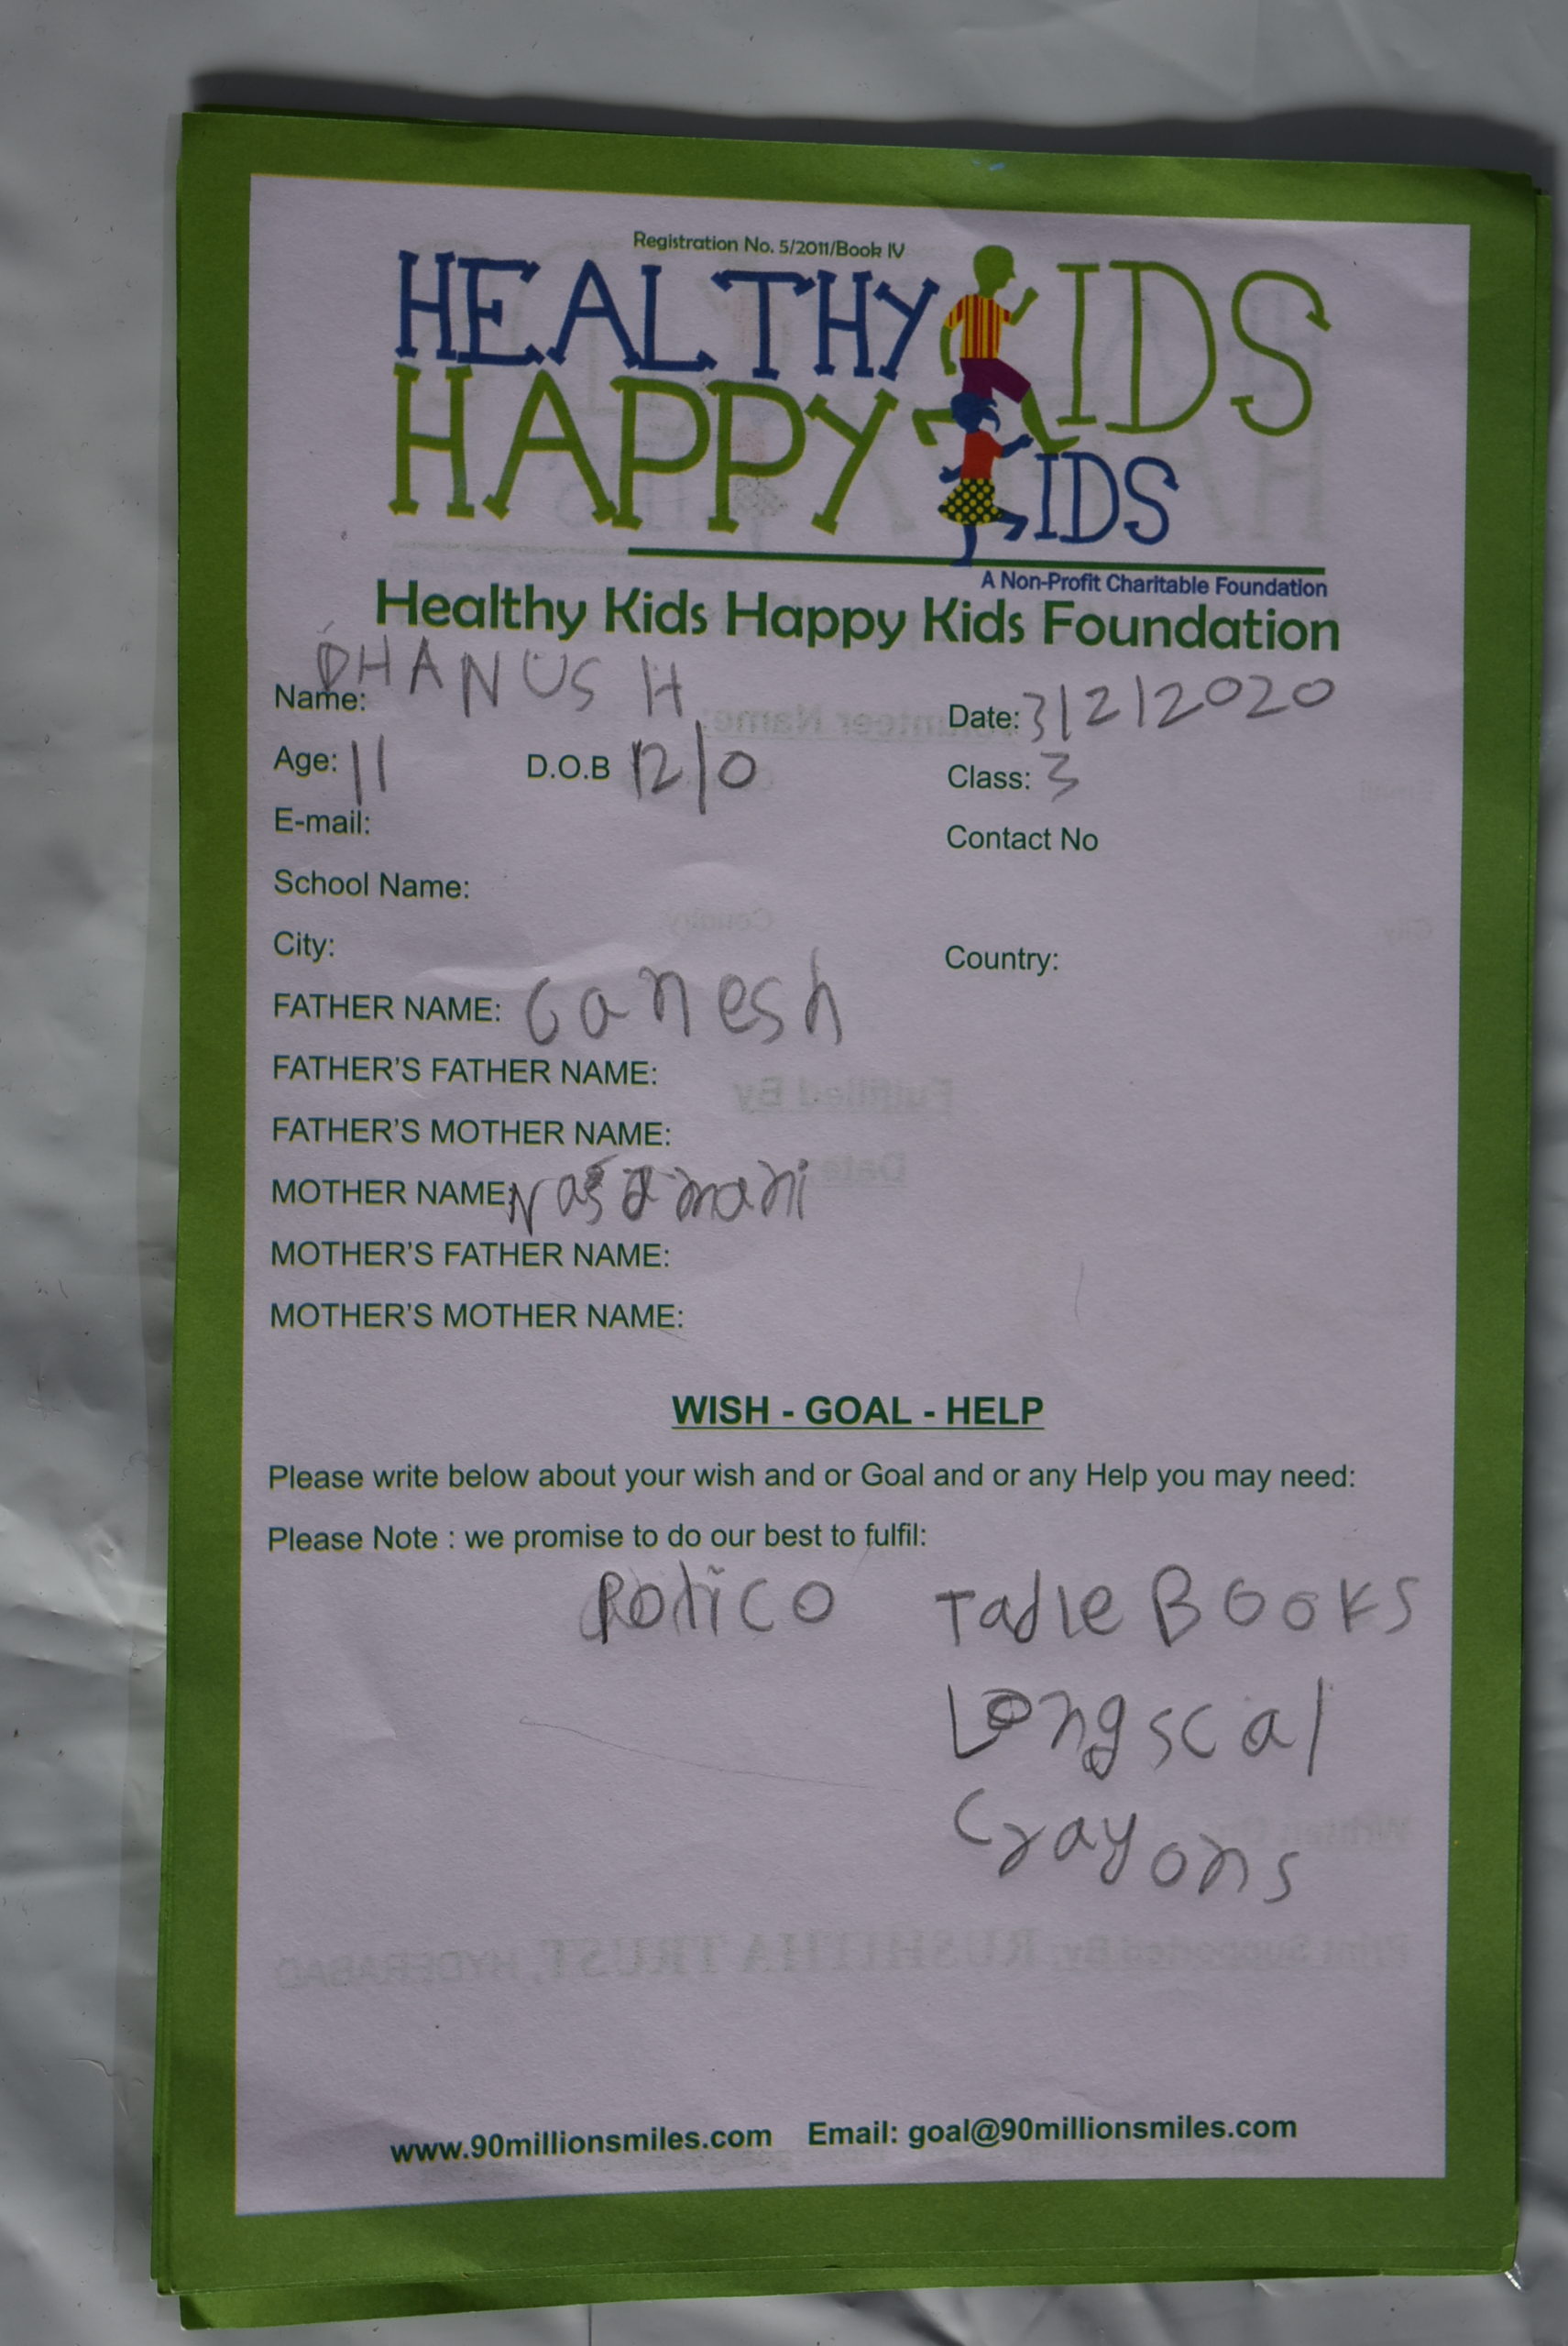 Registration No. 5/2011/Book IV
HEALTHY KIDS
HAPPY KIDS
A Non-Profit Charitable Foundation
Healthy Kids Happy Kids Foundation
Name: DHANUSH Date: 3/2/2020
Age: 11 D.O.B 12/0 Class: 3
E-mail: Contact No
School Name:
City: Country:
FATHER NAME: Ganesh
FATHER'S FATHER NAME:
FATHER'S MOTHER NAME:
MOTHER NAME:
MOTHER'S FATHER NAME:
MOTHER'S MOTHER NAME:
WISH - GOAL - HELP
Please write below about your wish and or Goal and or any Help you may need:
Please Note : we promise to do our best to fulfil:
Tadle BOOKS
Longscal
Crayons
www.90millionsmiles.com Email: goal@90millionsmiles.com